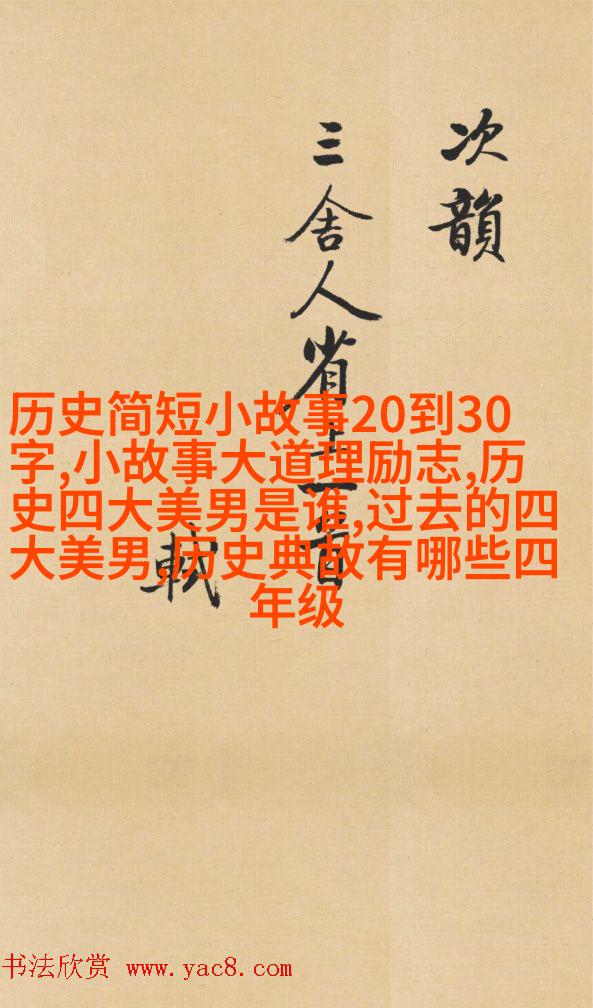 次韻
三舍人省上一首
軾
历史简短小故事20到30
字,小故事大道理励志,历
史四大美男是谁,过去的四
大美男,历史典故有哪些四
年级
书法欣赏 www.yac8.com